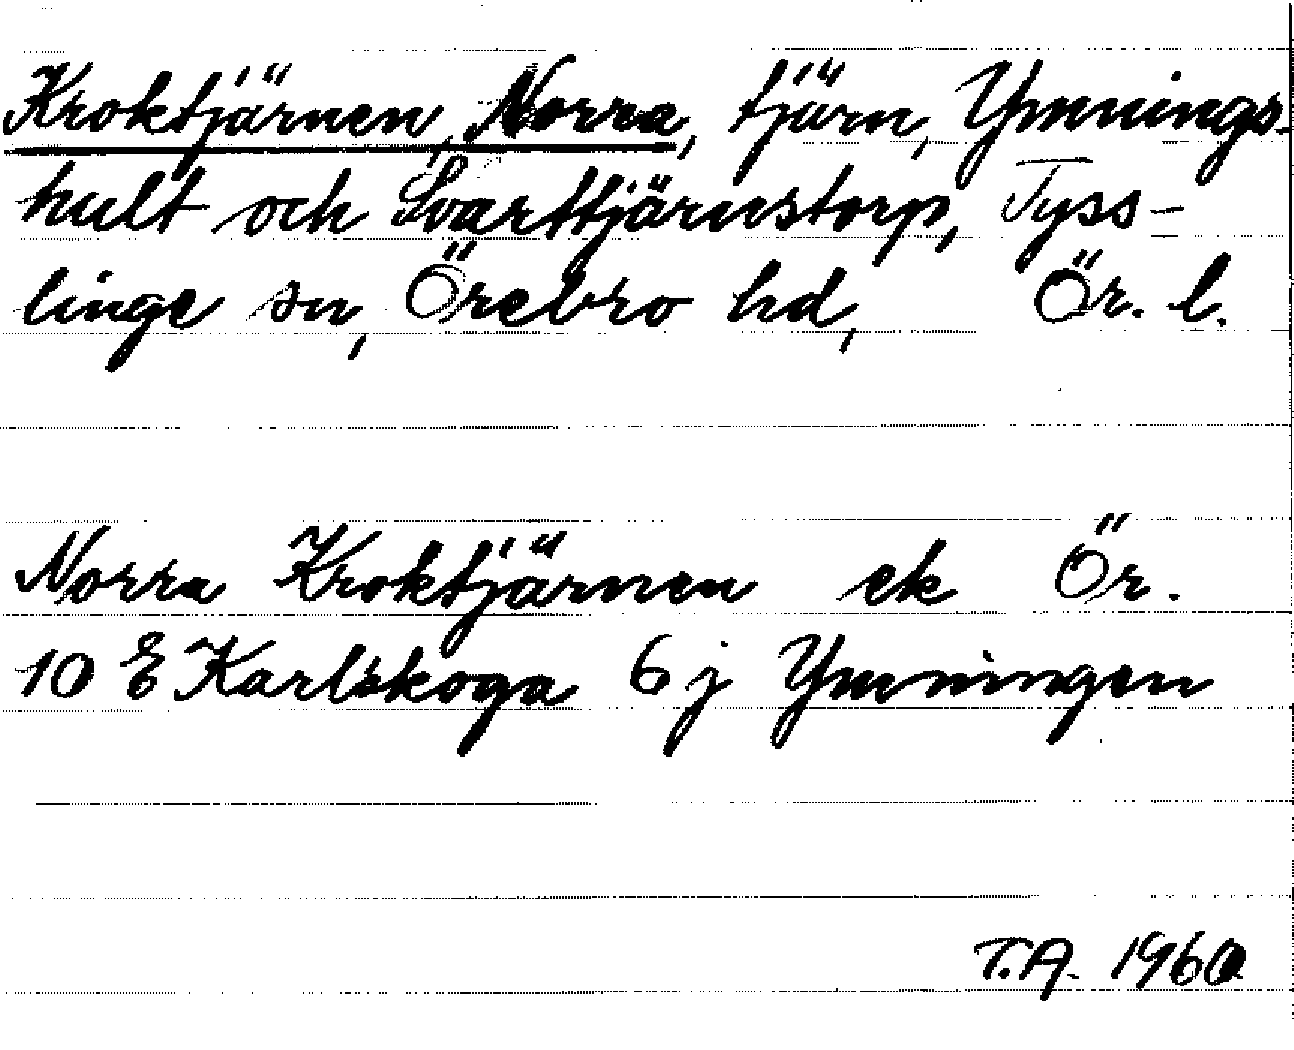 Kroktjärnen, Norra, tjärn, Ymnings-
hult och Svarttjärnstorp, Tyss-
linge sn, Örebro hd, Ör. l.
Norra Kroktjärnen ek Ör.
10 E Karlskoga 6 j Ymningen
T.A. 1960